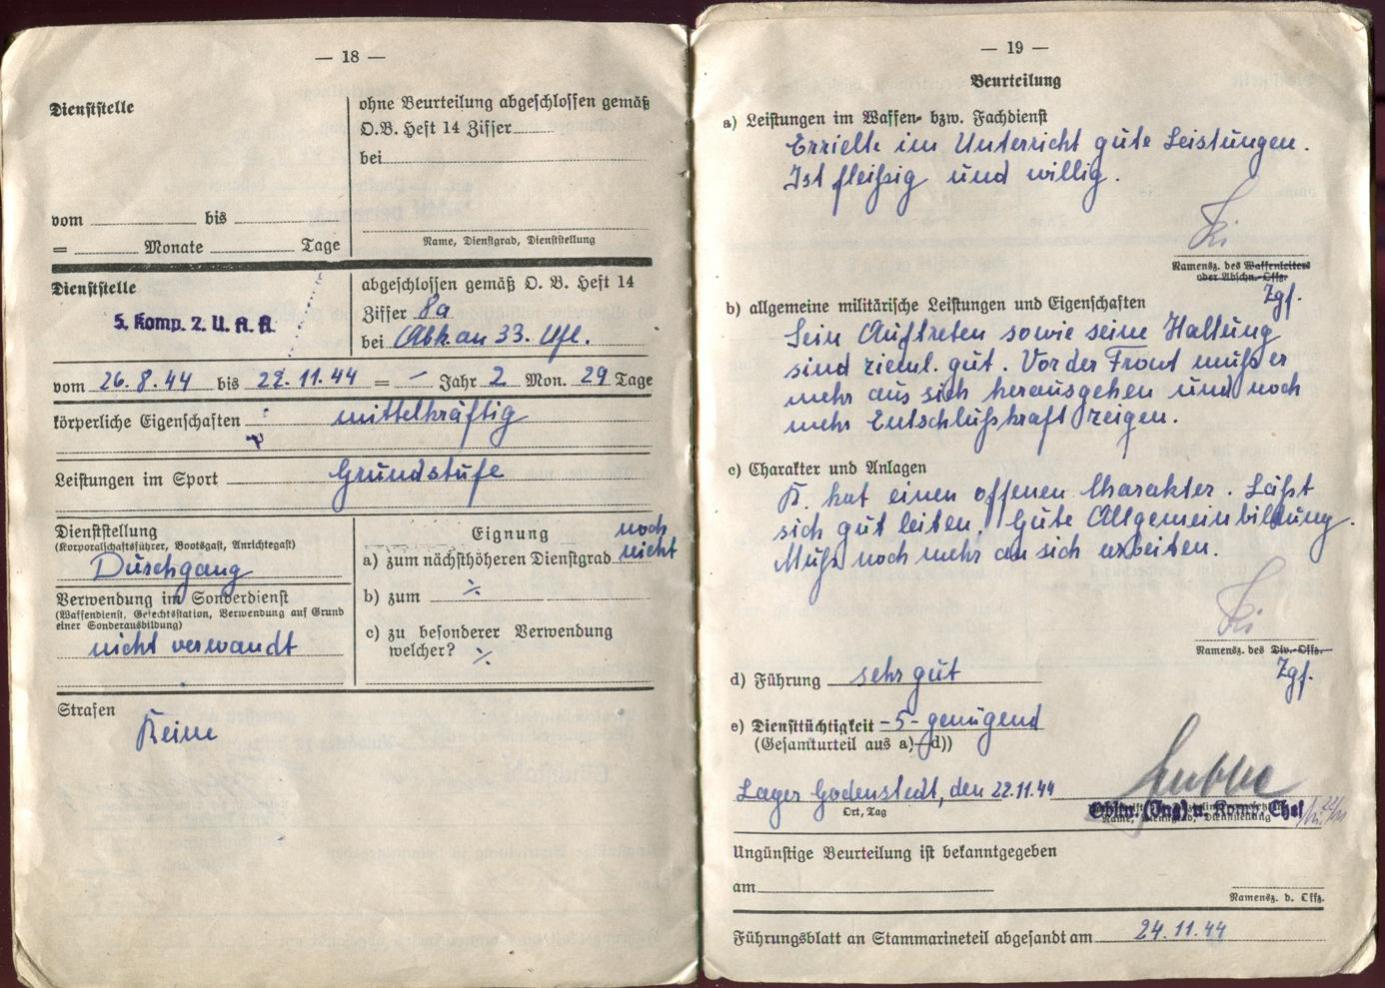 — 18 —
Dienststelle
ohne Beurteilung abgeschlossen gemäß
O.B. Heft 14 Ziffer
bei
vom bis
= Monate Tage
Name, Dienstgrad, Dienststellung
Dienststelle
5. Komp. 2. U. A. A.
abgeschlossen gemäß O. B. Heft 14
Ziffer 8a
bei Abk. an 33. Ufl.
vom 26.8.44 bis 22.11.44 = - Jahr 2 Mon. 29 Tage
körperliche Eigenschaften mittelkräftig
Leistungen im Sport Grundstufe
Dienststellung
(Korporalschaftsführer, Bootsgast, Anrichtegast)
Durchgang
Verwendung im Sonderdienst
(Waffendienst, Gefechtsstation, Verwendung auf Grund
einer Sonderausbildung)
nicht verwandt
Eignung
a) zum nächsthöheren Dienstgrad noch nicht
b) zum ./.
c) zu besonderer Verwendung
welcher? ./.
Strafen
Keine
— 19 —
Beurteilung
a) Leistungen im Waffen- bzw. Fachdienst
Erzielte im Unterricht gute Leistungen.
Ist fleißig und willig.
Namensz. des Waffenleiters
oder Abschn.-Offz.
Zgf.
b) allgemeine militärische Leistungen und Eigenschaften
Sein Auftreten sowie seine Haltung
sind zieml. gut. Vor der Front muß er
mehr aus sich herausgehen und noch
mehr Entschlußkraft zeigen.
c) Charakter und Anlagen
K. hat einen offenen Charakter. Läßt
sich gut leiten. Gute Allgemeinbildung.
Muß noch mehr an sich arbeiten.
Namensz. des Div.-Offz.
Zgf.
d) Führung sehr gut
e) Diensttüchtigkeit -5- genügend
(Gesamturteil aus a)-d))
Lager Godenstedt, den 22.11.44
Ort, Tag
Obltn. (Ing) u. Komp. Chef
Ungünstige Beurteilung ist bekanntgegeben
am
Namensz. d. Offz.
Führungsblatt an Stammarineteil abgesandt am 24.11.44